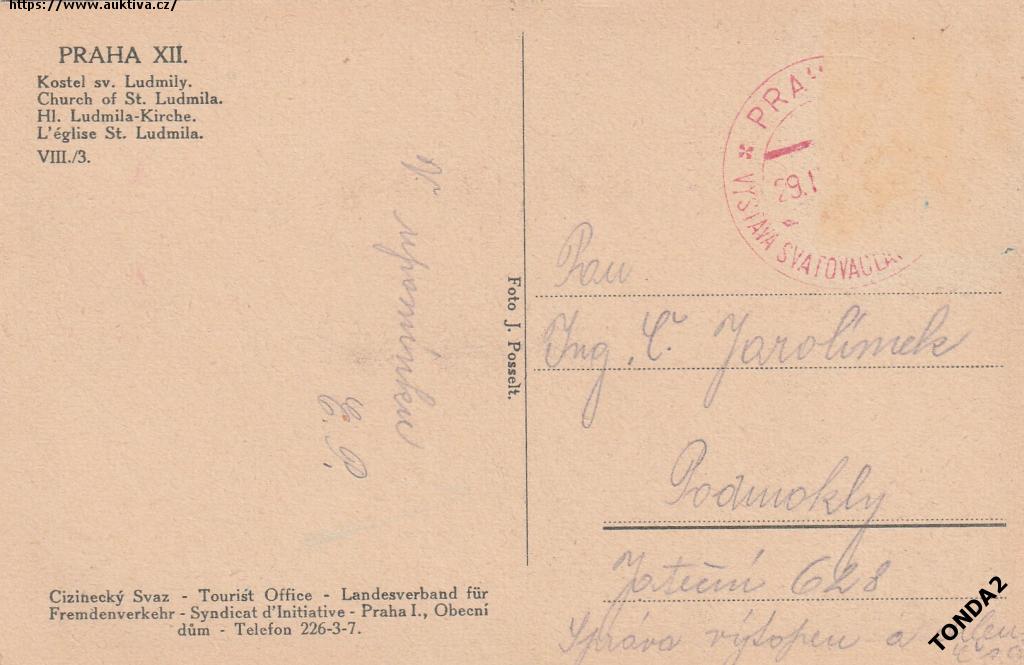 https://www.auktiva.cz/
PRAHA XII.
Kostel sv. Ludmily.
Church of St. Ludmila.
Hl. Ludmila-Kirche.
L'église St. Ludmila.
VIII./3.
V. upomínku
E. P.
Foto J. Posselt.
PRA
29.I
VÝSTAVA SVATOVÁCLA
Pan
Ing. Č. Jarolímek
Podmokly
Jateční 628
Správa výtopen a
Cizinecký Svaz - Tourist Office - Landesverband für
Fremdenverkehr - Syndicat d'Initiative - Praha I., Obecní
dům - Telefon 226-3-7.
TONDA2